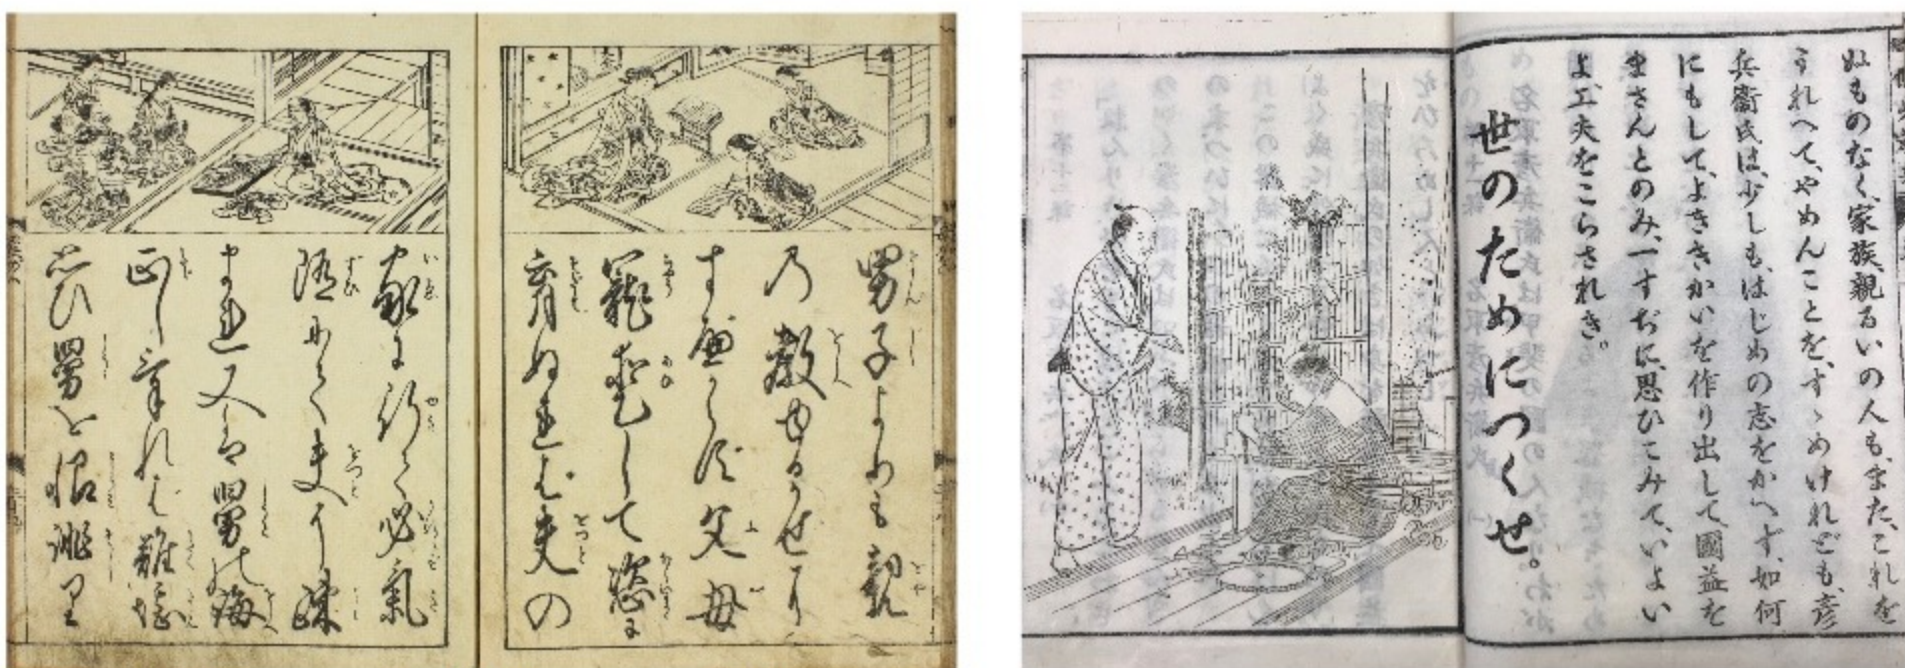 男子よりも親
乃教ゆるかせに
すべからず父母
寵愛して恣に
育ぬれば夫の
家に行て必氣
随にて夫に疎
まれ又は舅の誨
正しければ難堪
思ひ舅を恨誹り
ぬものなく、家族親るいの人も、また、これを
うれへて、やめんことを、すゝめけれども、彦
兵衞氏は、少しも、はじめの志をかへず、如何
にもして、よききかいを作り出して、國益を
まさんとのみ、一すぢに、思ひこみて、いよい
よ、工夫をこらされき。
世のためにつくせ。